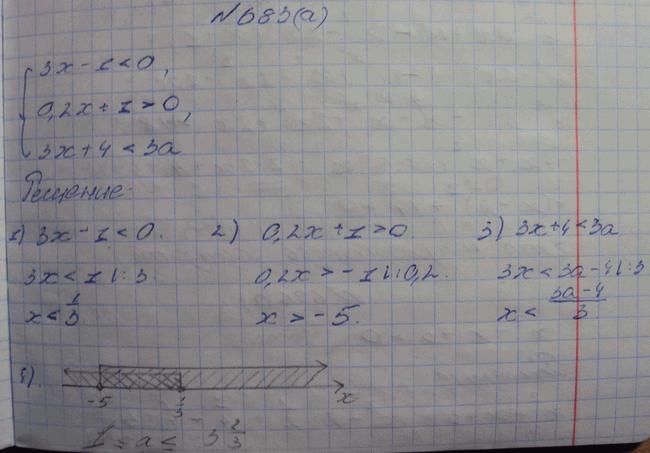 №683(а)
3x - 1 < 0,
0,2x + 1 > 0,
3x + 4 < 3a
Решение.
1) 3x - 1 < 0. 2) 0,2x + 1 > 0 3) 3x + 4 < 3a
3x < 1 | : 3. 0,2x > -1 | : 0,2. 3x < 3a - 4 | : 3
x < 1/3 x > -5. x < (3a - 4)/3
4).
-5 1/3 x
a ≤ 3 2/3